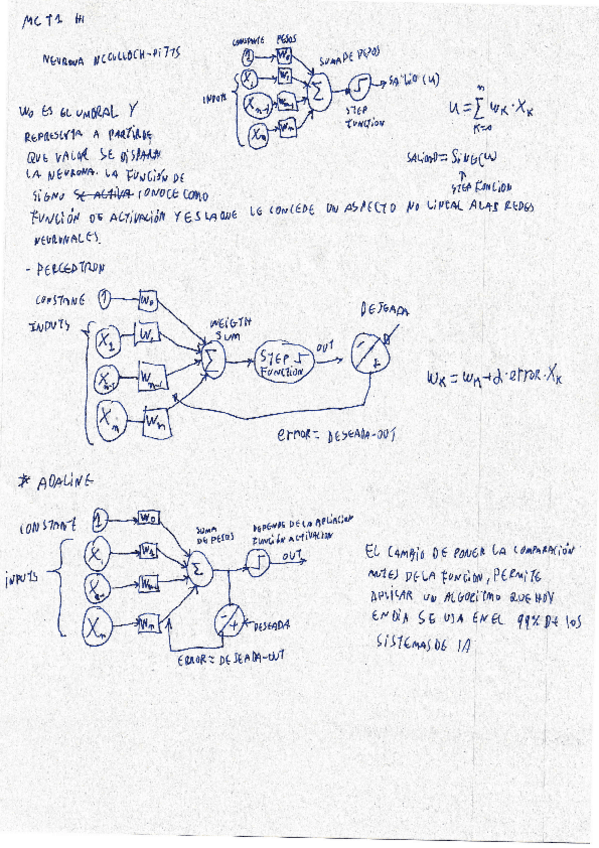 MCT1 H1
NEURONA MCCULLOCH-PITTS
CONSTANTE PESOS
1 W0
SUMA DE PESOS
INPUTS
X1 W1
Xn-1 Wn-1
Xn Wn
Σ
STEP
FUNCTION
SALIDA (u)
u = Σ wK · XK
n
K=0
SALIDA = SING(u)
↑
STEP FUNCION
W0 ES EL UMBRAL Y
REPRESENTA A PARTIR DE
QUE VALOR SE DISPARA
LA NEURONA. LA FUNCIÓN DE
SIGNO SE ACTIVA CONOCE COMO
FUNCIÓN DE ACTIVACIÓN Y ES LA QUE LE CONCEDE UN ASPECTO NO LINEAL A LAS REDES
NEURONALES.
- PERCEPTRON
CONSTANE 1 W0
INPUTS
X1 W1
Xn-1 Wn-1
Xn Wn
WEIGTH
SUM
Σ
STEP
FUNCTION
OUT
DESEADA
- +
error = DESEADA-OUT
WK = WK + α · error · XK
* ADALINE
CONSTANE 1 W0
INPUTS
X W1
Xn-1 Wn-1
Xn Wn
SUMA
DE PESOS
Σ
DEPENDE DE LA APLIACION
FUNCIÓN ACTIVACION
OUT
- +
DESEADA
ERROR = DESEADA-OUT
EL CAMBIO DE PONER LA COMPARACIÓN
ANTES DE LA FUNCION, PERMITE
APLICAR UN ALGORITMO QUE HOY
EN DIA SE USA EN EL 99% DE LOS
SISTEMAS DE IA